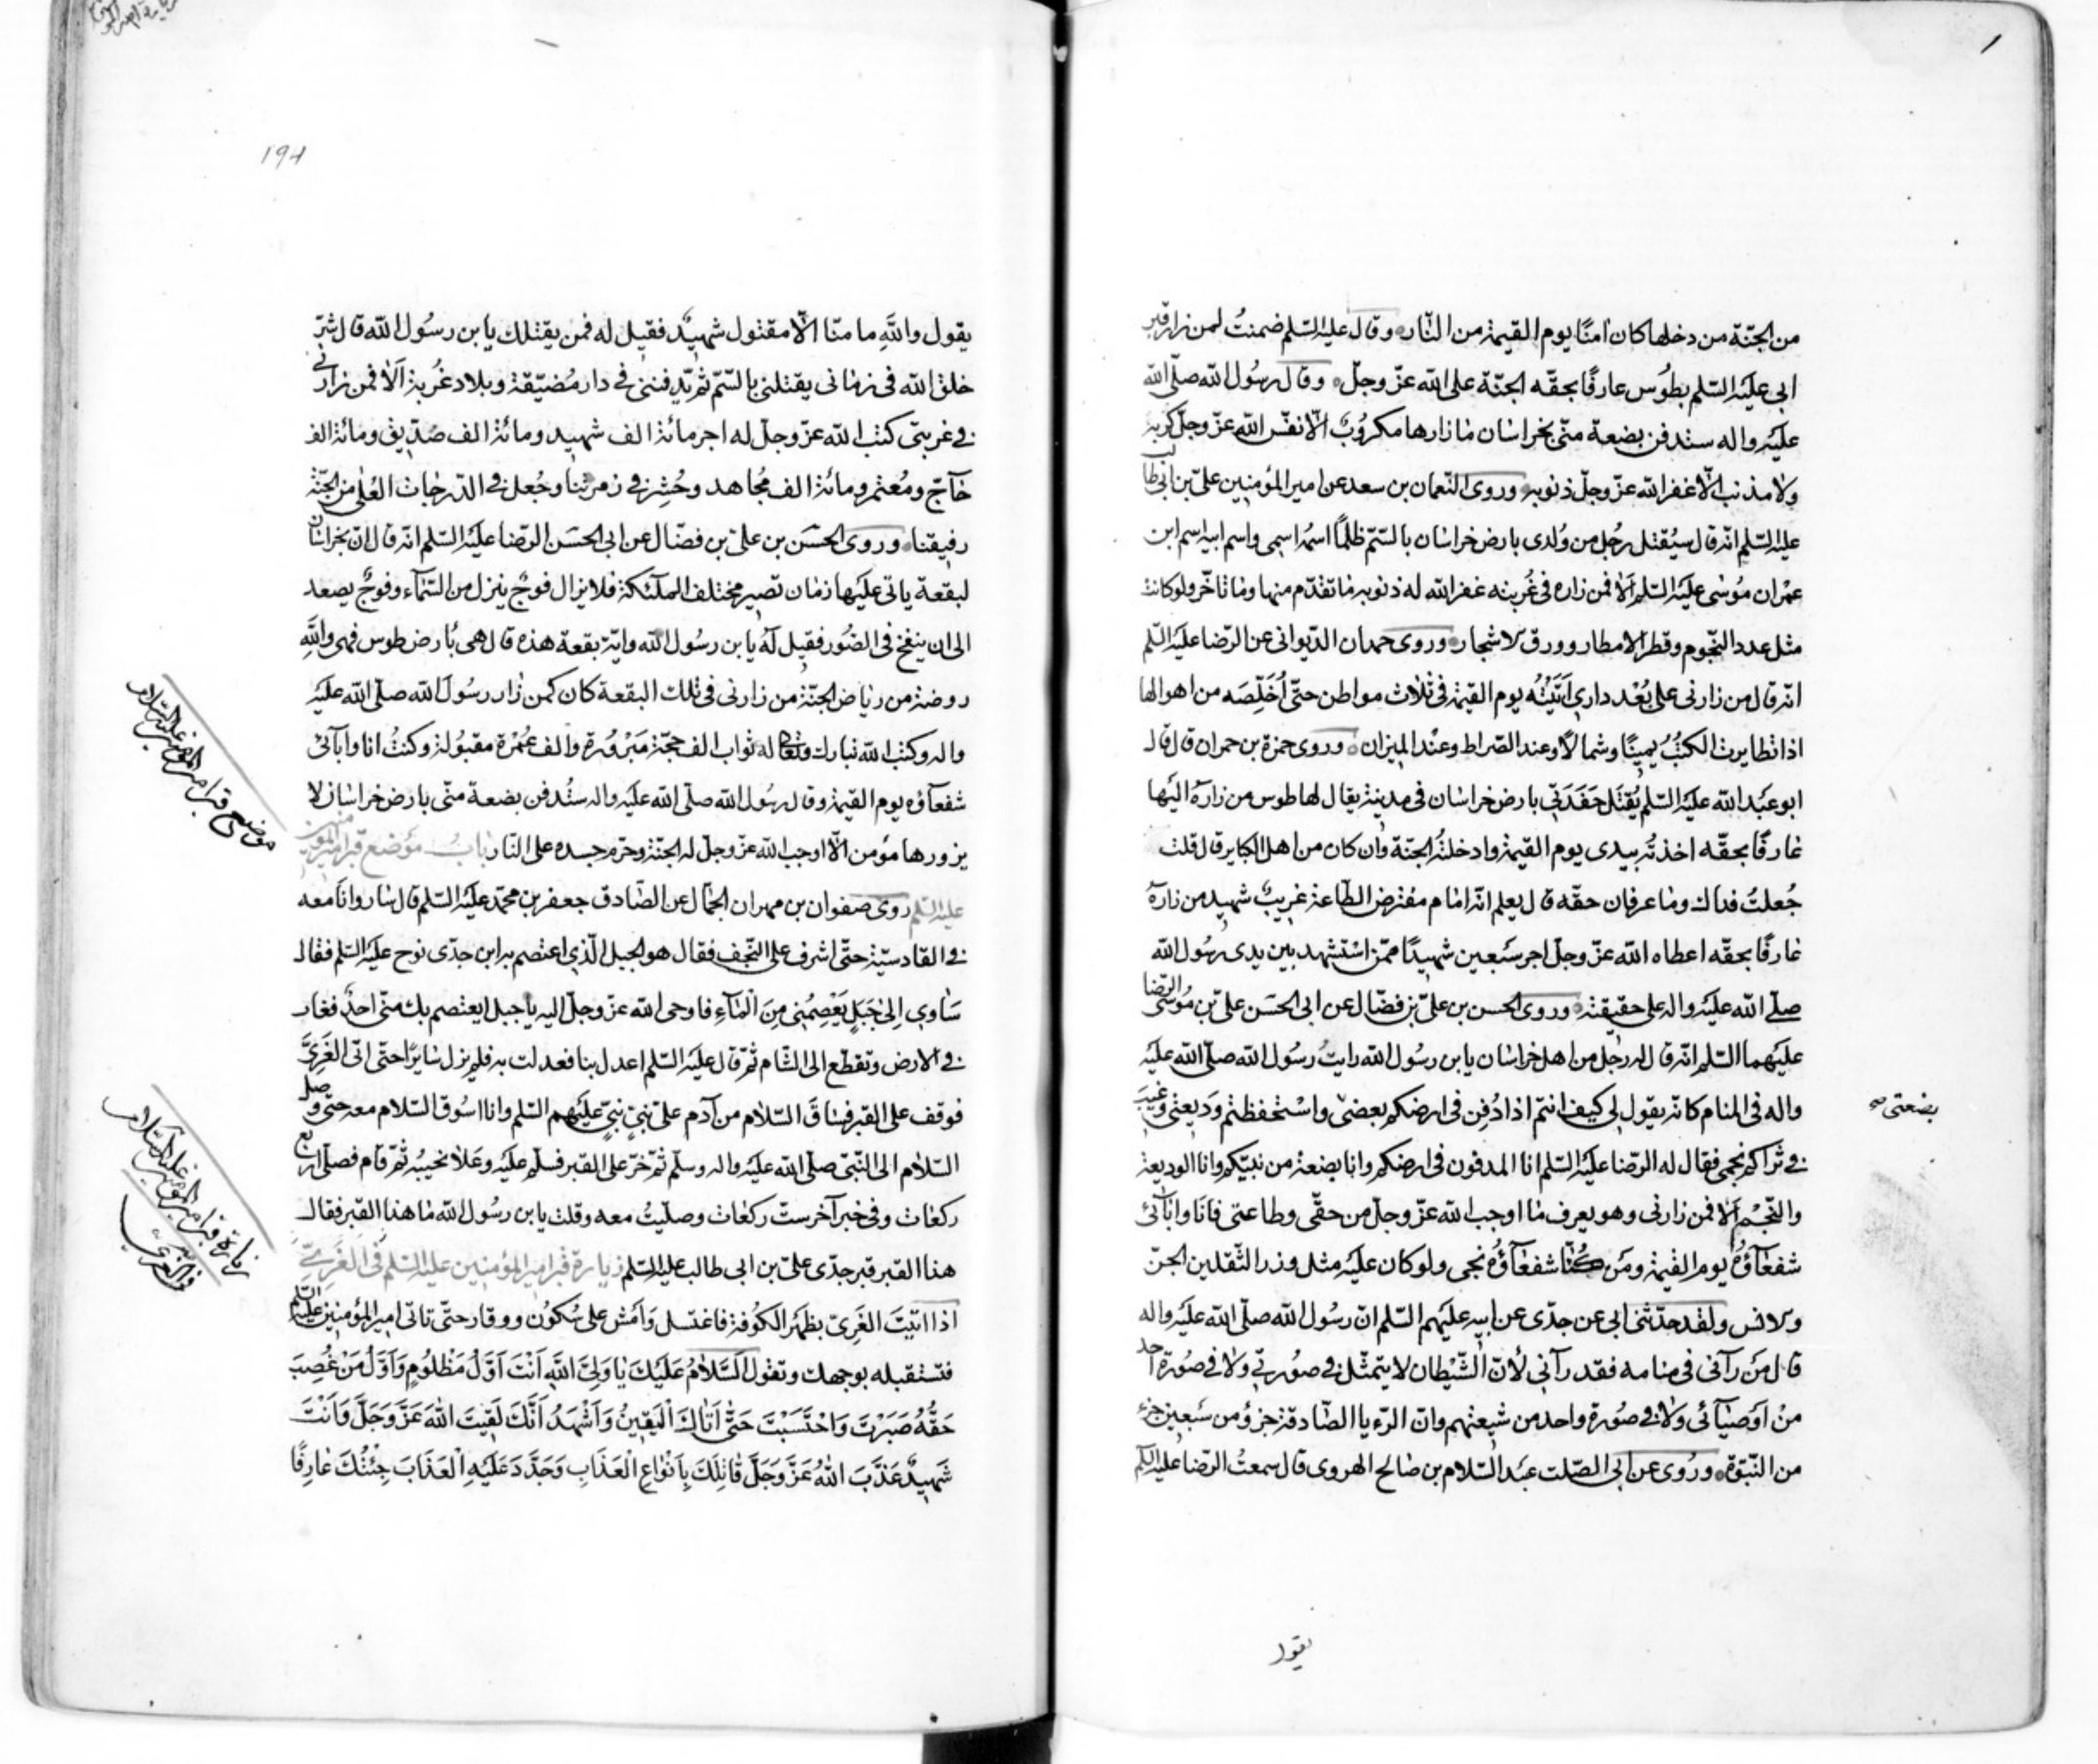 من الجنّة من دخلها كان امنًا يوم القيمة من النّار وقال عليه السّلم ضمنتُ لمن زار قبر
ابى عليه السّلم بطُوس عارفًا بحقّه الجنّة على الله عزّ وجلّ وقال رسُول الله صلّى الله
عليه واله ستدفن بضعة منّى بخراسان مازارها مكروُبٌ الّا نفّس الله عزّ وجلّ كربه
ولا مذنب الّا غفر الله عزّ وجلّ ذنوبه وروى النّعمان بن سعد عن امير المؤمنين علىّ بن ابى طالب
عليه السّلم انّه قال سيُقتل رجُل من وُلدى بارض خراسان بالسّمّ ظلمًا اسمُه اسمى واسم ابيه اسم ابن
عمران مُوسٰى عليه السّلم اَلا فمن زاره فى غُربته غفر الله له ذنوبه ما تقدّم منها وما تاخّر ولو كانت
مثل عدد النّجوم وقطر الامطار وورق الاشجار وروى حمدان الدّيوانى عن الرّضا عليه السّلم
انّه قال من زارنى على بُعْد دارى اَتَيْتُه يوم القيمة فى ثلاث مواطن حتّى اُخَلِّصَه من اهوالها
اذا تطايرت الكتبُ يمينًا وشمالًا وعند الصّراط وعند الميزان وروى حمزة بن حمران قال قال
ابو عبد الله عليه السّلم يُقتَل حَفَدَتى بارض خراسان فى مدينة يقال لها طوس من زاره اليها
عارفًا بحقّه اخذته بيدى يوم القيمة وادخلتُه الجنّة وان كان من اهل الكباير قال قلت
جُعلتُ فداك وما عرفان حقّه قال يعلم انّه امام مفترض الطّاعة غريبٌ شهيد من زاره
عارفًا بحقّه اعطاه الله عزّ وجلّ اجر سَبعين شهيدًا ممّن اسْتشهد بين يدى رسُول الله
صلّى الله عليه واله على حقيقة وروى الحسن بن علىّ بن فضّال عن ابى الحسَن علىّ بن مُوسٰى الرّضا
عليهما السّلم انّه قال له رجُل من اهل خراسان يابن رسُول الله رايتُ رسُول الله صلّى الله عليه
واله فى المنام كانّه يقول لى كيف انتم اذا دُفِن فى ارضكم بعضى واسْتحفظتم وَديعتى وغيّب
فى ثراكم نجمى فقال له الرّضا عليه السّلم انا المدفون فى ارضكم وانا بضعة من نبيّكم وانا الوديعة
والنّجم اَلا فمن زارنى وهو يعرف ما اوجب الله عزّ وجلّ من حقّى وطاعتى فانا وابائى
شفعآؤُهُ يوم القيمة ومَن كُنّا شفعآؤُه نجى ولو كان عليه مثل وزر الثّقلين الجنّ
والانس ولقد حدّثنى ابى عن جدّى عن ابيه عليهم السّلم انّ رسُول الله صلّى الله عليه واله
قال مَن رآنى فى منامه فقد رآنى لأنّ الشّيطان لا يتمثّل فى صورتى ولا فى صُورة احد
منْ اَوصيآئى ولا فى صُورة واحد من شيعتهم وانّ الرّءيا الصّادقة جزؤُ من سَبعين جزء
من النّبوّة ورُوى عن ابى الصّلت عبد السّلام بن صالح الهروى قال سمعتُ الرّضا عليه السّلم
بضعتى
يقول
۱۹۴
يقول واللّهِ ما منّا الّا مقتول شهيدٌ فقيل له فمن يقتلك يابن رسُول الله قال شرّ
خلق الله فى زمانى يقتلنى بالسّمّ ثمّ يدفننى فى دار مُضيّقة وبلاد غُربة اَلا فمن زارنى
فى غربتى كتب الله عزّ وجلّ له اجر مائة الف شهيد ومائة الف صدّيق ومائة الف
حآجّ ومُعتمر ومائة الف مُجاهد وحُشِر فى زمرتنا وجُعل فى الدّرجات العُلٰى من الجنّة
رفيقنا وروى الحسَن بن علىّ بن فضّال عن ابى الحسَن الرّضا عليه السّلم انّه قال انّ بخراسان
لبقعة ياتى عليها زمان تصير مختلف الملئكة فلا يزال فوجٌ ينزل من السّمآء وفوجٌ يصعد
الى ان ينفخ فى الصّور فقيل لهُ يابن رسُول الله وايّة بقعة هذه قال هى بأرض طوس فهى واللّهِ
روضة من رياض الجنّة من زارنى فى تلك البقعة كان كمن زار رسُول الله صلّى الله عليه
واله وكتب الله تبارك وتعالى له ثواب الف حجّة مَبْرُورة والف عُمْرة مقبُولة وكنتُ انا وابآئى
شفعآؤه يوم القيمة وقال رسُول الله صلّى الله عليه واله ستُدفن بضعة منّى بارض خراسان لا
يزورها مؤمن الّا اوجب الله عزّ وجلّ له الجنّة وحرّم جسده على النّار بابُ موضع قبر امير المؤمنين
عليه السّلم روى صفوان بن مهران الجمّال عن الصّادق جعفر بن محمّد عليه السّلم قال سار وانا معه
فى القادسيّة حتّى اشرف على النّجف فقال هو الجبل الّذى اعتصم به ابن جدّى نوح عليه السّلم فقال
سَاوى اِلىٰ جَبَلٍ يَعْصِمُنى مِنَ الْمَآءِ فاوحى الله عزّ وجلّ اليه ياجبل ايعتصم بك منّى احدٌ فغار
فى الارض وتقطّع الى الشّام ثمّ قال عليه السّلم اعدل بنا فعدلت به فلم يزل سايرًا حتّى اتى الغَرِىَّ
فوقف على القبر فساقَ السّلام من آدم على نبىٍّ نبىٍّ عليهم السّلم وانا اسُوق السّلام معه حتّى وصل
السّلام الى النّبىّ صلّى الله عليه واله وسلّم ثمّ خرّ على القبر فسلّم عليه وعَلا نحيبُه ثمّ قام فصلّى اربع
ركعات وفى خبر آخر ستّ ركعات وصلّيتُ معه وقلت يابن رسُول الله ما هذا القبر فقال
هذا القبر قبر جدّى علىّ بن ابى طالب عليه السّلم زيارة قبر امير المؤمنين عليه السّلم فى الغَرِىّ
اذا اتيتَ الغَرِىّ بظَهْر الكوفة فاغتسل وَامْشِ على سُكُون ووقار حتّى تاتى امير المؤمنين عليه السّلم
فتستقبله بوجهك وتقول اَلسَّلامُ عَلَيْكَ يا وَلِىَّ اللّهِ اَنْتَ اَوَّلُ مَظْلُومٍ وَاَوَّلُ مَنْ غُصِبَ
حَقُّهُ صَبَرْتَ وَاحْتَسَبْتَ حَتّى اَتاكَ الْيَقينُ وَاَشْهَدُ اَنَّكَ لَقيتَ اللهَ عَزَّ وَجَلَّ وَاَنْتَ
شَهيدٌ عَذَّبَ اللهُ عَزَّ وَجَلَّ قاتِلَكَ بِاَنْواعِ الْعَذابِ وَجَدَّدَ عَلَيْهِ الْعَذابَ جِئْتُكَ عارِفًا
موضع قبر امير المؤمنين عليه السلام
زيارة قبر امير المؤمنين عليه السلام
فى الغرى